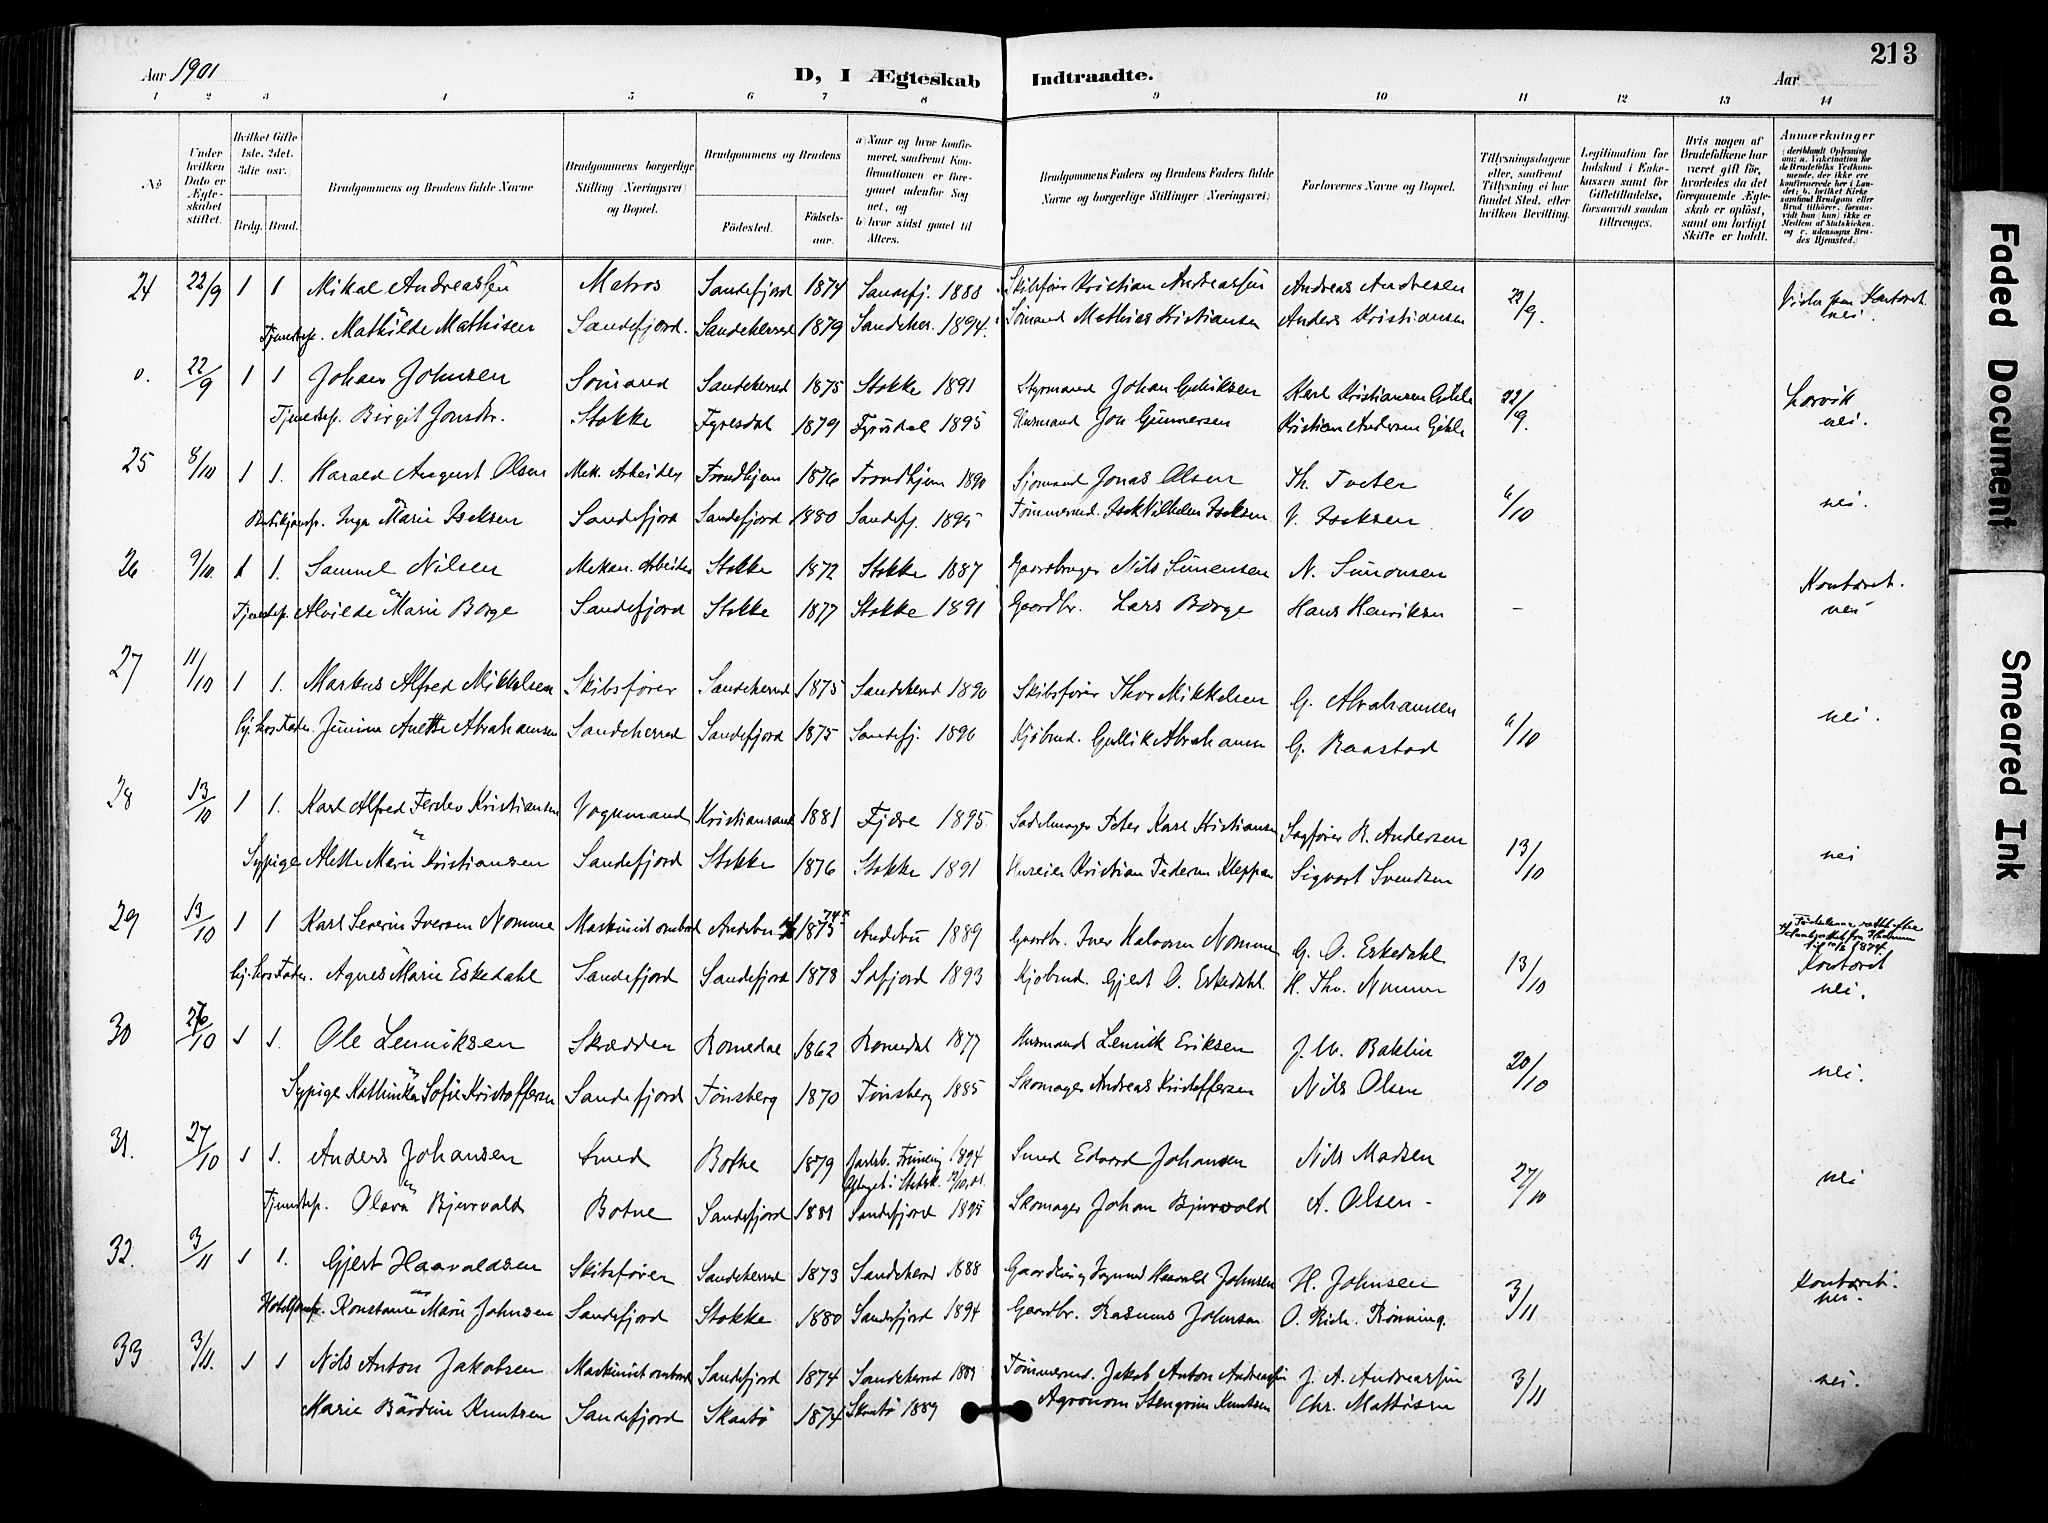 Aar 1901 D, I Ægteskab Indtraadte. Aar 213
1 2 3 4 5 6 7 8 9 10 11 12 13 14
No
Under hvilken Dato er Ægteskabet stiftet.
Hvilket Gifte 1ste. 2det. 3die osv.)
Brdg. Brud.
Brudgommens og Brudens fulde Navne
Brudgommens borgerlige Stilling (Næringsvei) og Bopæl.
Brudgommens og Brudens
Fødested. Fødselsaar.
a) Naar og hvor konfirmeret, saafremt Konfirmationen er foregaaet udenfor Sognet, og b) hvor sidst gaaet til Alters.
Brudgommens Faders og Brudens Faders fulde Navne og borgerlige Stillinger (Næringsvei)
Forlovernes Navne og Bopæl.
Tillysningsdagene eller, saafremt Tillysning ei har fundet Sted, efter hvilken Bevilling.
Legitimation for Indskud i Enkekassen samt for Giftetilladelse, forsaavidt saadan tiltrænges.
Hvis nogen af Brudefolkene har været gift før, hvorledes da det foregaaende Ægteskab er opløst, samt om lovligt Skifte er holdt.
Anmærkninger (deriblandt Oplysning om: a. Vakcination for de Brudefolks Vedkommende, der ikke ere konfirmerede her i Landet; b. hvilket Kirkesamfund Brudgom eller Brud tilhører, forsaavidt han (hun) ikke er Medlem af Statskirken, og c. udensogns Brudes Hjemsted.)
24 22/9 1 1 Mikal Andreassen Matros Sandefjord 1874 Sandefj. 1888 Skibsfører Kristian Andreassen Andreas Andresen 22/9. Kontoret
Tjenestep. Mathilde Mathisen Sandefjord. Sandeherred 1879 Sandeher. 1894. Sømand Mathias Kristiansen Anders Kristiansen nei.
0. 22/9 1 1 Johan Johnsen Sømand Sandeherred 1875 Stokke 1891 Styrmand Johan Gulliksen Karl Kristiansen 22/9. Larvik
Tjenestep. Birgit Jonsdtr. Stokke Fyresdal 1879 Fyrisdal 1895 Husmand Jon Gunnersen Kristian Andersen nei.
25 8/10 1 1. Harald August Olsen Mek. Arbeider Trondhjem 1876 Trondhjem 1890 Sjømand Jonas Olsen Th. Tveter 6/10 nei.
Inga Marie Isaksen Sandefjord Sandefjord 1880 Sandefj. 1895 Tømmermd. Isak Vilhelm Isaksen V. Isaksen
26 9/10. 1 1. Samuel Nilsen Mekan. Arbeider Stokke 1872 Stokke 1887 Gaardbruger Nils Simensen N. Simonsen Kontoret.
Tjenestep. Alvilde Marie Borge Sandefjord Stokke 1877 Stokke 1891 Gaardbr. Lars Borge Hans Henriksen – nei
27 11/10 1 1. Markus Alfred Mikkelsen Skibsfører Sandeherred 1875 Sandeherred 1890 Skibsfører Thor Mikkelsen G. Abrahamsen 6/10 nei.
hj. hos Fader. Jenine Anette Abrahamsen Sandeherred Sandefjord 1875 Sandefj. 1890 Kjøbmd. Gullik Abrahamsen G. Raastad
28 13/10 1 1. Karl Alfred Kristiansen Vognmand Kristiansand 1881 Fjære 1895 Sadelmager Peter Karl Kristiansen Sagfører R. Andersen 13/10 nei
Sypige Alette Marie Kristiansen Sandefjord Stokke 1876 Stokke 1891 Huseier Kristian Pedersen Kleppan Sigvart Svendsen
29 13/10 1 1 Karl Severin Iversen Nomme Maskinist ombord Andebu 1875 74 Andebu 1889 Gaardbr. Iver Halvorsen Nomme G. O. Eskedahl 13/10 1874. Kontoret
hj. hos Fader. Agnes Marie Eskedahl Sandefjord Sandefjord 1878 Sandefjord 1893 Kjøbmd. Gjert O. Eskedahl. H. Thv. Nomme nei.
30 26/10 1 1. Ole Lenriksen Skrædder Romedal 1862 Romedal 1877 Husmand Lenrik Eriksen J. M. Baklin 20/10 nei.
Sypige Kathinka Sofie Kristoffersen Sandefjord Tønsberg 1870 Tønsberg 1885 Skomager Andreas Kristoffersen Nils Olsen
31. 27/10 1 1. Anders Johansen Smed Botne 1879 Jarlsb. Frimenig 1894 Smed Edvard Johansen Nils Madsen 27/10 nei
Optaget i Statsk.
Tjenestep. Olava Bjervald Botne Sandefjord 1881 Sandefjord 1895 Skomager Johan Bjervold A. Olsen –
32. 3/11 1 1. Gjert Haavaldsen Skibsfører Sandeherred 1873 Sandeherred 1888 Haavald Johnsen H. Johnsen 3/11 Kontoret.
Konstance Marie Johnsen Sandefjord Stokke 1880 Sandefjord 1894 Gaardbr. Rasmus Johnsen O. Rich. Rønning. nei.
33 3/11. 1 1 Nils Anton Jakobsen Maskinist ombord Sandefjord 1874 Sandeherred 1889 Tømmermd. Jakob Anton Andreassen J. A. Andreassen 3/11 nei.
Marie Bardine Knutsen Sandefjord Skaatø 1874 Skaatø 1889 Agronom Stengrim Knutsen Chr. Mathisen
Faded Document
Smeared Ink